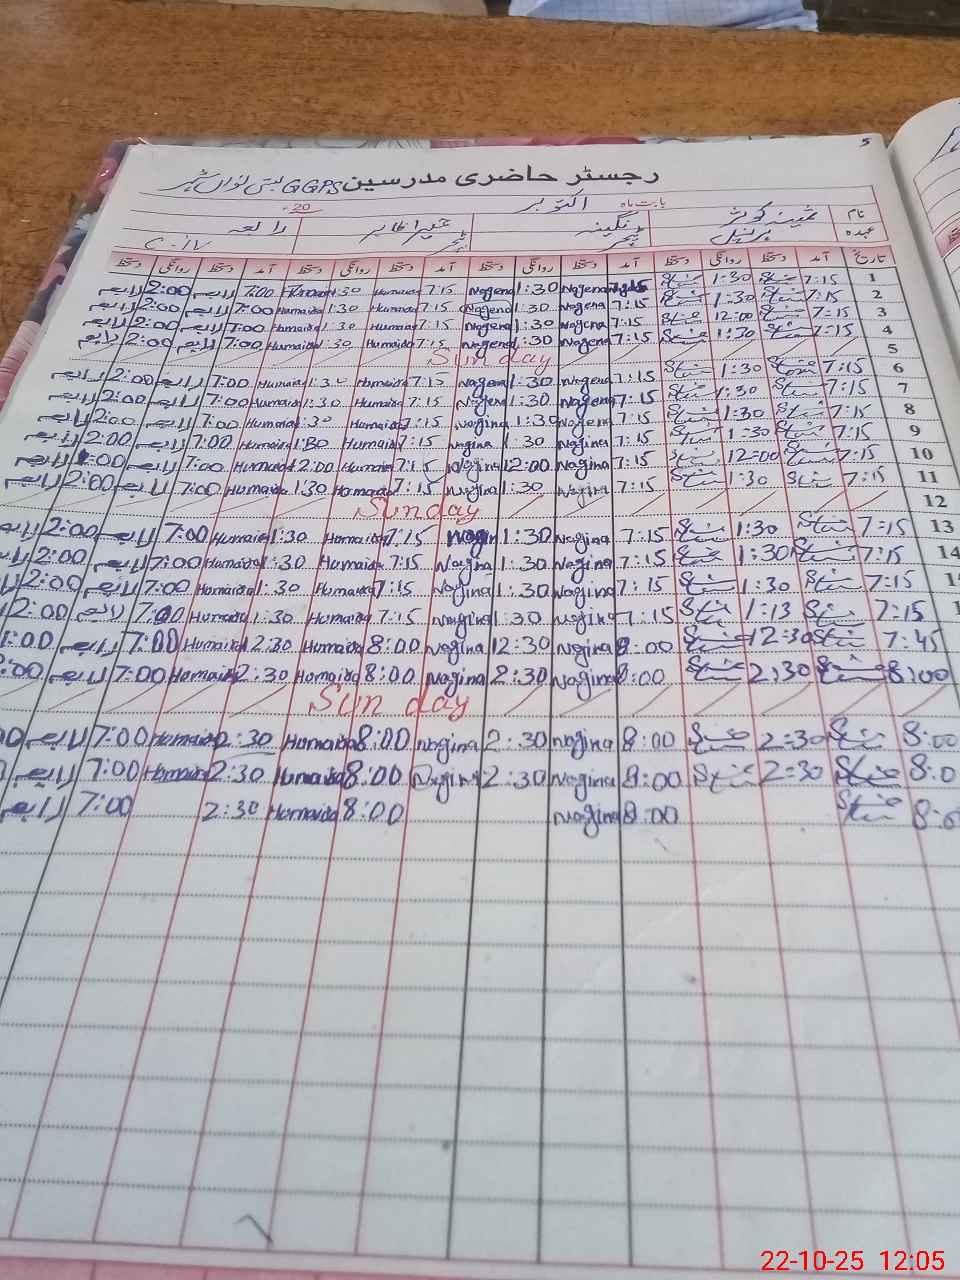 5
رجسٹر حاضری مدرسین GGPS بستی نواں شہر
بابت ماہ اکتوبر 20
نام ثمینہ کوثر نگینہ حمیرا طاہر رابعہ
عہدہ پرنسپل ٹیچر ٹیچر C-IV
تاریخ آمد دستخط روانگی دستخط آمد دستخط روانگی دستخط آمد دستخط روانگی دستخط آمد دستخط روانگی دستخط
1 7:15 1:30 7:15 Nagena 1:30 Nogena 7:15 Humaida 1:30 7:00 رابعہ 2:00 رابعہ
2 7:15 1:30 7:15 Nagena 1:30 Nagena 7:15 Humaida 1:30 Humaida 7:00 رابعہ 2:00 رابعہ
3 7:15 12:00 7:15 Nagena 1:30 Nogena 7:15 Humaida 1:30 Humaida 7:00 رابعہ 2:00 رابعہ
4 7:15 1:30 7:15 Nagena 1:30 Nagena 7:15 Humaida 1:30 Humaida 7:00 رابعہ 2:00 رابعہ
5 Sunday
6 7:15 1:30 7:15 Nogena 1:30 Nagena 7:15 Humaida 1:30 Humaida 7:00 رابعہ 2:00 رابعہ
7 7:15 1:30 7:15 Nogena 1:30 Nagena 7:15 Humaida 1:30 Humaida 7:00 رابعہ 2:00 رابعہ
8 7:15 1:30 7:15 Nogena 1:30 Nogina 7:15 Humaida 1:30 Humaida 7:00 رابعہ 2:00 رابعہ
9 7:15 1:30 7:15 Nagina 1:30 Nagina 7:15 Humaida 1:30 Humaida 7:00 رابعہ 2:00 رابعہ
10 7:15 12:00 7:15 Nagina 12:00 Nagina 7:15 Humaida 12:00 Humaida 7:00 رابعہ :00 رابعہ
11 7:15 1:30 7:15 Nagina 1:30 Nagina 7:15 Homaida 1:30 Humaida 7:00 رابعہ 2:00 رابعہ
12 Sunday
13 7:15 1:30 7:15 Nagina 1:30 7:15 Homaida 1:30 Humaida 7:00 رابعہ 2:00
14 7:15 1:30 7:15 Nagina 1:30 Nagina 7:15 Humaida 1:30 Humaida 7:00 رابعہ 2:00
7:15 1:30 7:15 Nagina 1:30 Nagina 7:15 Humaida 1:30 Humaida 7:00 رابعہ 2:00
7:15 1:13 7:15 Nagina 1:30 Nagina 7:15 Humaida 1:30 Humaida 7:00 رابعہ 2:00
7:45 12:30 8:00 Nagina 12:30 Nagina 8:00 Humaida 12:30 Humaida 7:00 رابعہ 1:00
8:00 2:30 8:00 Nagina 2:30 Nagina 8:00 Homaida 2:30 Humaida 7:00 رابعہ :00
Sunday
8:00 2:30 8:00 Nagina 2:30 Nagina 8:00 Humaida 2:30 Humaida 7:00 رابعہ
8:0 2:30 8:00 Nagina 2:30 Nagina 8:00 Humaida 2:30 Humaida 7:00 رابعہ
8:0 8:00 Nagina 8:00 Homaida 2:30 7:00 رابعہ
22-10-25 12:05